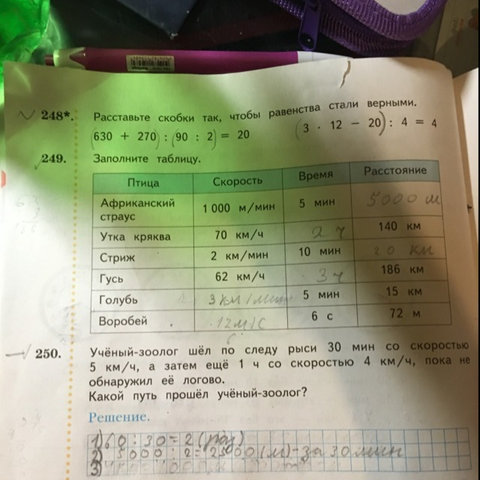 248*. Расставьте скобки так, чтобы равенства стали верными.
(630 + 270) : (90 : 2) = 20 (3 · 12 − 20) : 4 = 4
249. Заполните таблицу.
Птица Скорость Время Расстояние
Африканский страус 1 000 м/мин 5 мин 5000 м
Утка кряква 70 км/ч 2 ч 140 км
Стриж 2 км/мин 10 мин 20 км
Гусь 62 км/ч 3 ч 186 км
Голубь 3 км/мин 5 мин 15 км
Воробей 12 м/с 6 с 72 м
250. Учёный-зоолог шёл по следу рыси 30 мин со скоростью
5 км/ч, а затем ещё 1 ч со скоростью 4 км/ч, пока не
обнаружил её логово.
Какой путь прошёл учёный-зоолог?
Решение.
1) 60 : 30 = 2 (раз)
2) 5000 : 2 = 2500 (м) - за 30 мин
3)